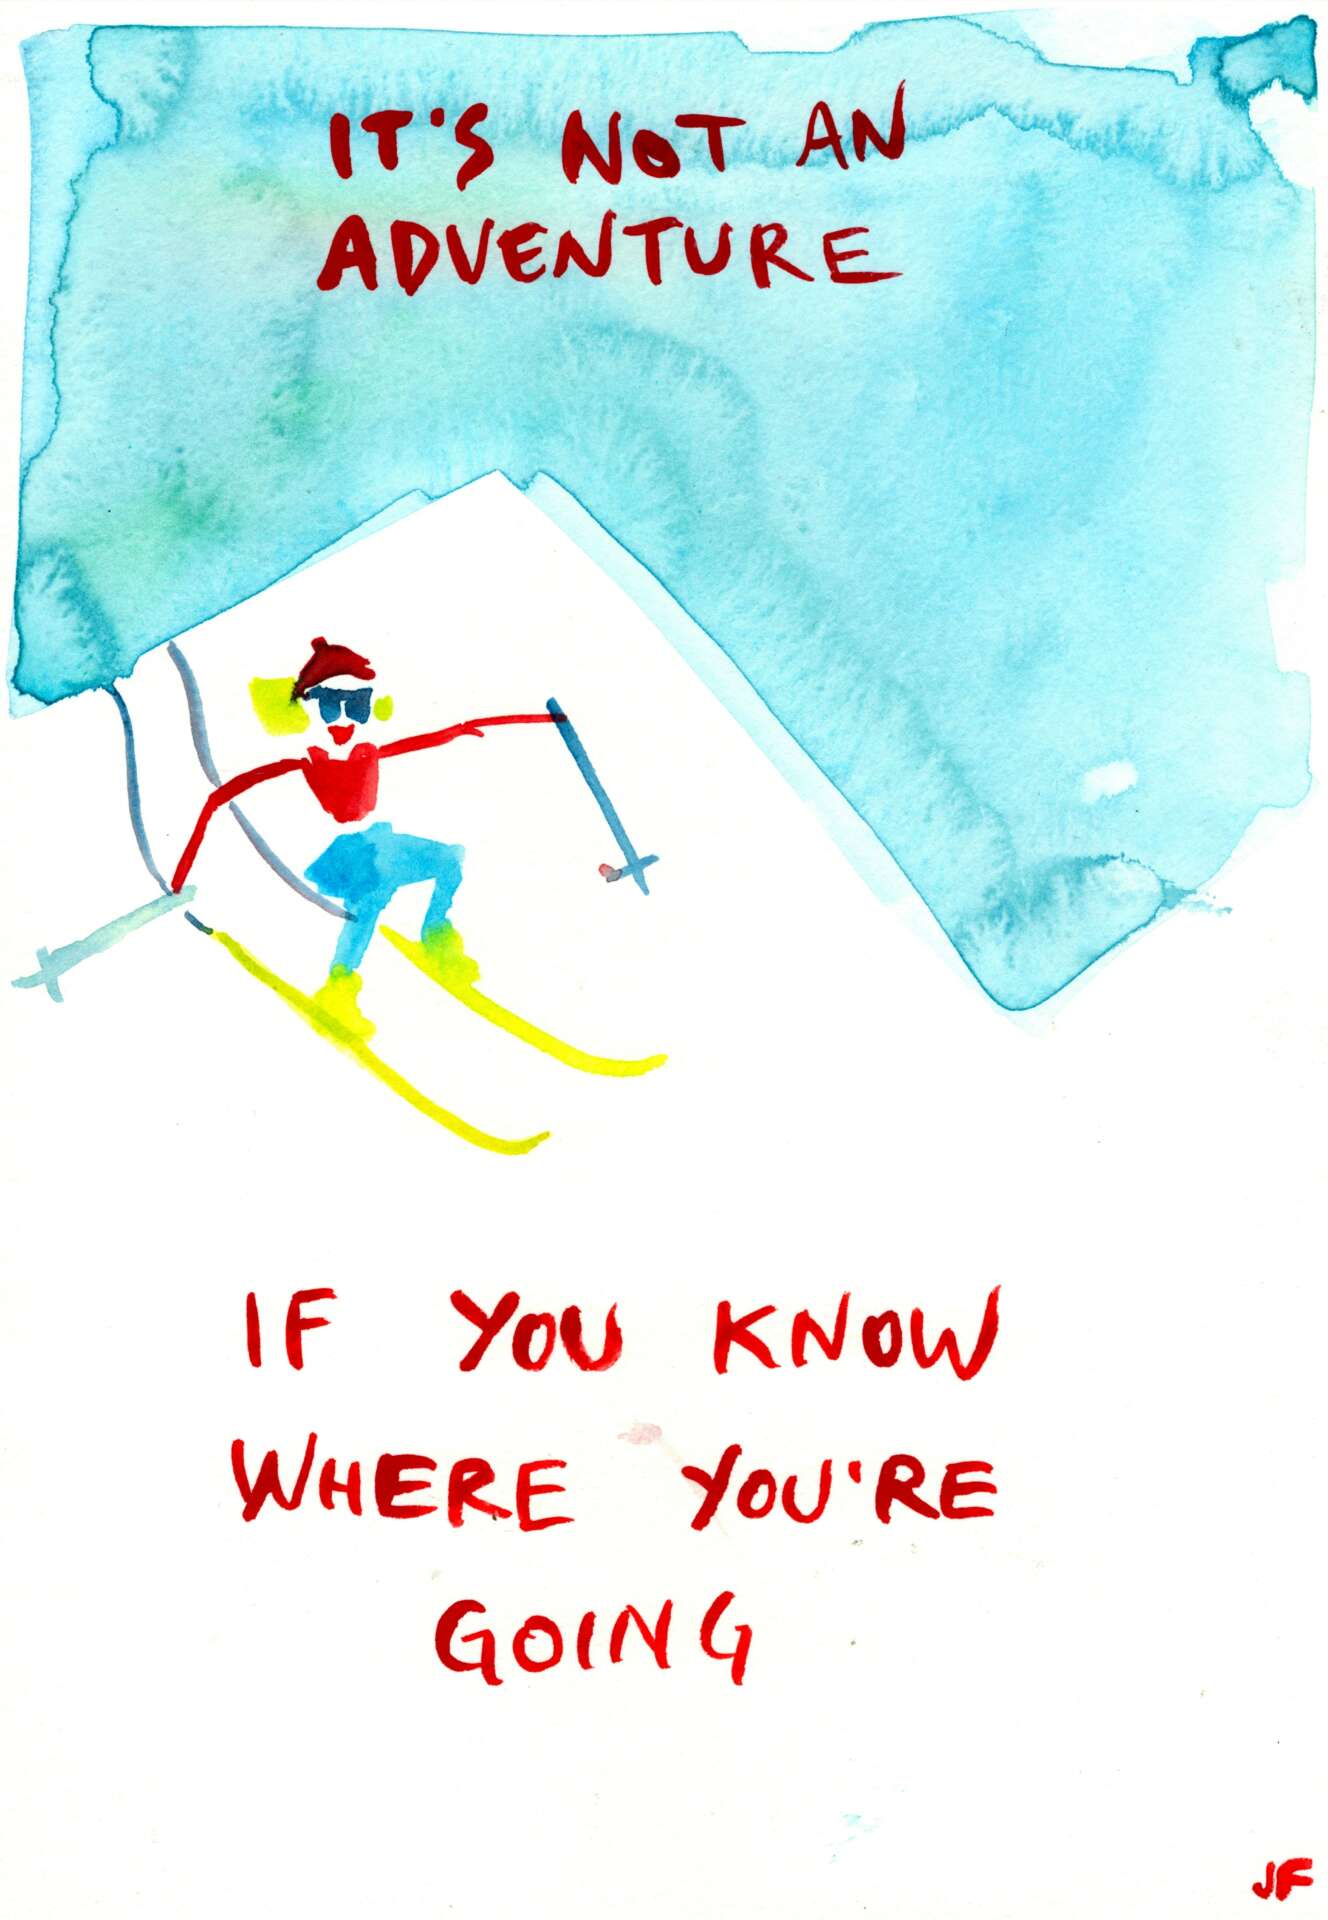 IT'S NOT AN
ADVENTURE
IF YOU KNOW
WHERE YOU'RE
GOING
JF